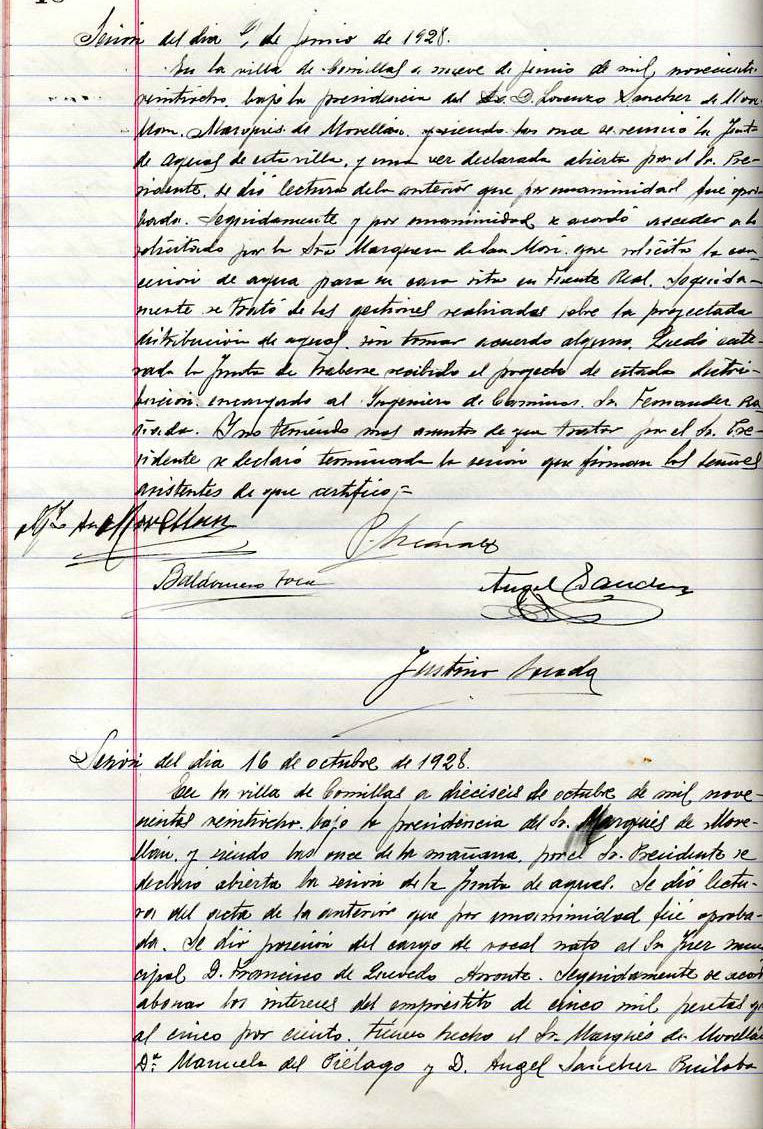 Sesión del dia 9, de junio de 1928.
En la villa de Comillas a nueve de junio de mil novecientos
veintiocho, bajo la presidencia del Sr. D. Lorenzo Sanchez de Mov-
llan, Marqués de Movellán, y siendo las once se reunió la Junta
de aguas de esta villa, y una vez declarada abierta por el Sr. Pre-
sidente, se dió lectura de la anterior que por unanimidad fué apro-
bada. Seguidamente y por unanimidad se acordó acceder a lo
solicitado por la Sra Marquesa de San Mori, que solicita la con-
cesion de agua para su casa sita en Fuente Real. Seguida-
mente se trató de las gestiones realizadas sobre la proyectada
distribución de aguas, sin tomar acuerdo alguno. Quedó ente-
rada la Junta de haberse recibido el proyecto de citada distri-
bucion, encargado al Ingeniero de Caminos, Sr. Fernandez
Y no teniendo mas asuntos de que tratar por el Sr. Pre-
sidente se declaró terminada la sesion que firman los señores
asistentes de que certifico,=
Movellan
Baldomero
Angel Sanchez
Justino
Sesión del dia 16 de octubre de 1928.
En la villa de Comillas a dieciseis de octubre de mil nove-
cientos veintiocho, bajo la presidencia del Sr. Marqués de Move-
llán, y siendo las once de la mañana, por el Sr. Presidente se
declaró abierta la sesion de la Junta de aguas. Se dió lectu-
ra del acta de la anterior que por unanimidad fué aproba-
da. Se dió posesion del cargo de vocal nato al Sr. Juez muni
cipal D. Francisco de Quevedo Arronte. Seguidamente se acordó
abonar los intereses del empréstito de cinco mil pesetas q
al cinco por ciento, tienen hecho el Sr. Marqués de Movellán
Dª Manuela del Piélago y D. Angel Sanchez Ruiloba